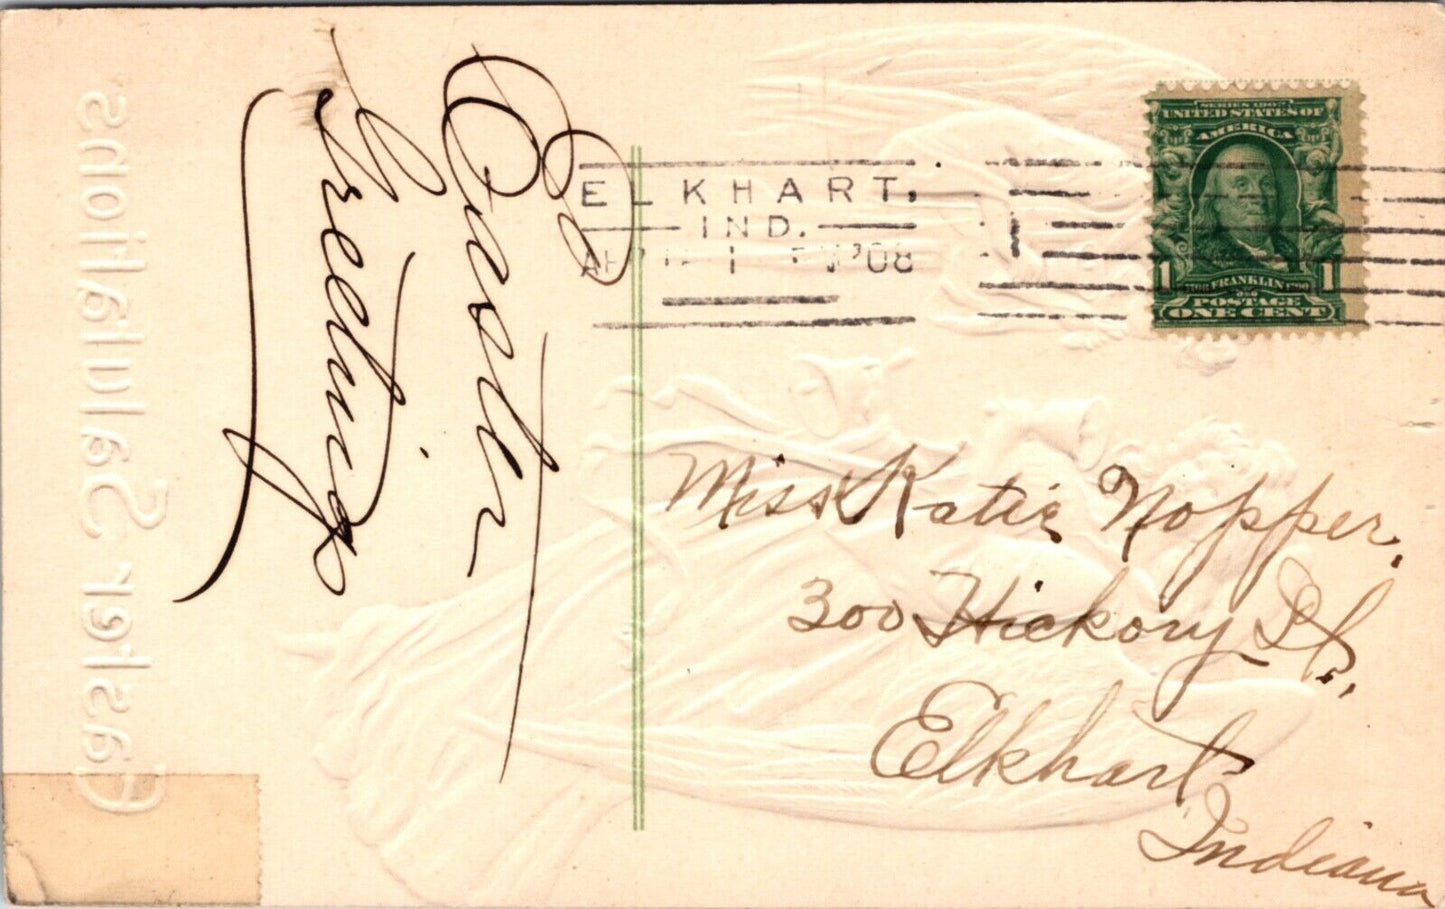 Easter
Greetings
ELKHART,
IND.
1 '08
SERIES 1902
UNITED STATES OF
AMERICA
1 FRANKLIN 1
POSTAGE
ONE CENT
Miss Katie Nopper,
300 Hickory St.,
Elkhart
Indiana
Easter Salutations